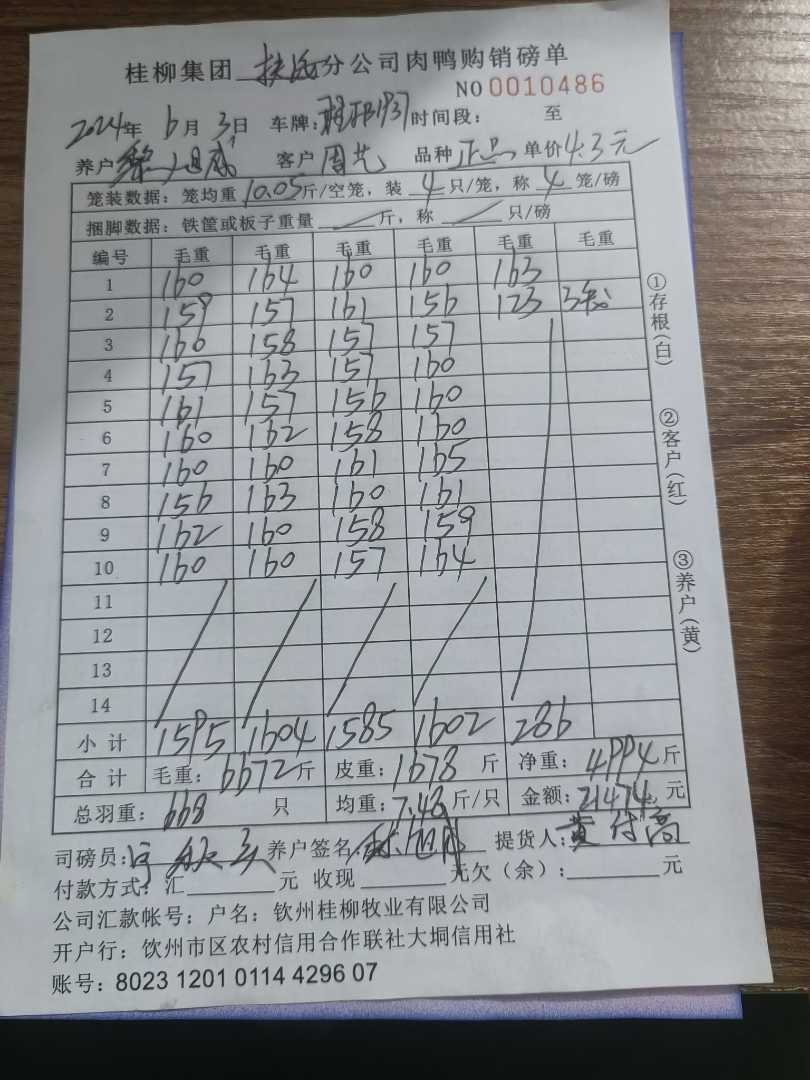 桂柳集团 扶绥 分公司肉鸭购销磅单
NO 0010486
2024年 6月 3日 车牌: 时间段: 至
养户 客户 周艺 品种 正品 单价 4.3元
笼装数据: 笼均重 10.05 斤/空笼, 装 4 只/笼, 称 4 笼/磅
捆脚数据: 铁筐或板子重量 斤, 称 只/磅
编号 毛重 毛重 毛重 毛重 毛重 毛重
1 160 164 160 160 163
2 159 157 161 156 123 3笼
3 160 158 157 157
4 157 163 157 160
5 161 157 156 160
6 160 162 158 160
7 160 160 161 165
8 156 163 160 161
9 162 160 158 159
10 160 160 157 164
11
12
13
14
小计 1595 1604 1585 1602 286
合计 毛重: 6672 斤 皮重: 1678 斤 净重: 4994 斤
总羽重: 668 只 均重: 7.48 斤/只 金额: 21474 元
司磅员: 养户签名: 提货人: 黄付高
付款方式: 汇 元 收现 元欠(余): 元
公司汇款帐号: 户名: 钦州桂柳牧业有限公司
开户行: 钦州市区农村信用合作联社大垌信用社
账号: 8023 1201 0114 4296 07
①存根(白)
②客户(红)
③养户(黄)